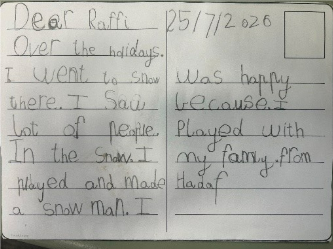 Dear Raffi
Over the holidays.
I went to snow
there. I Saw
Lot of people.
In the snow. I
played and made
a snow man. I
25/7/2020
was happy
because. I
Played with
my family. From
Hadaf